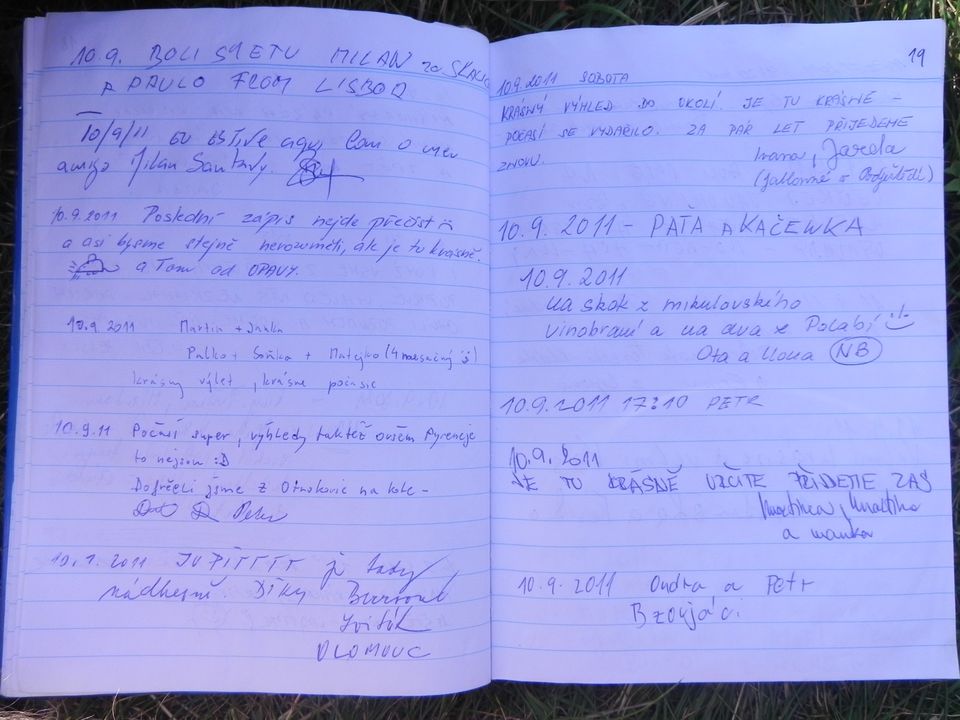 10.9. BOLI SME TU MILAN zo SKALICE
A PAULO FROM LISBOA
10/9/11 EU ESTIVE aqui, Com o meu
amigo Milan
10.9.2011 Poslední zápis nejde přečíst
a asi bysme stejně nerozuměli, ale je tu krásně.
a Tom od OPAVY.
10.9 2011 Martin + Janka
Palko + Soňka + Matejko (4 mesačný)
krásny výlet, krásne počasie
10.9.11 Počasí super, výhledy taktéž ovšem Pyreneje
to nejsou :D
jsme z na kole -
Peter
2011 JUPÍTTTT je tady
nádherně. Díky
OLOMOUC
19
10.9.2011 SOBOTA
KRÁSNÝ VÝHLED DO OKOLÍ JE TU KRÁSNĚ -
POČASÍ SE VYDAŘILO. ZA PÁR LET PŘIJEDEME
ZNOVU.
Ivana, Jarda
(Jablonné v Podještědí)
10.9.2011 - PAŤA A KAČEWKA
10.9.2011
na skok z mikulovského
vinobraní a na dva z Polabí :-)
Ota a Ilona NB
10.9.2011 17:10 PETR
10.9.2011
JE TU KRÁSNĚ URČITE PŘIDEME ZAS
a mamka
10.9.2011 Ondra a Petr